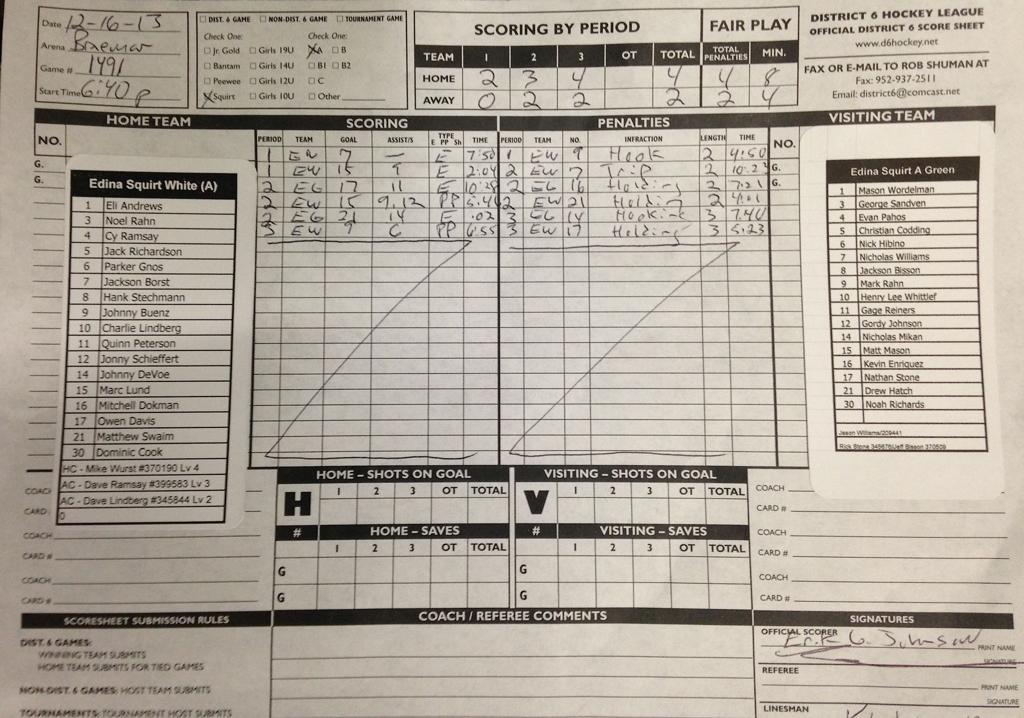 Date 12-16-13
Arena Braemar
Game # 1491
Start Time 6:40 p
DIST. 6 GAME NON-DIST. 6 GAME TOURNAMENT GAME
Check One: Check One:
Jr. Gold Girls 19U X A B
Bantam Girls 14U B1 B2
Peewee Girls 12U C
X Squirt Girls 10U Other
SCORING BY PERIOD FAIR PLAY
TEAM 1 2 3 OT TOTAL TOTAL PENALTIES MIN.
HOME 2 3 4 4 4 8
AWAY 0 2 2 2 2 4
DISTRICT 6 HOCKEY LEAGUE
OFFICIAL DISTRICT 6 SCORE SHEET
www.d6hockey.net
FAX OR E-MAIL TO ROB SHUMAN AT
Fax: 952-937-2511
Email: district6@comcast.net
HOME TEAM SCORING PENALTIES VISITING TEAM
NO. PERIOD TEAM GOAL ASSIST/S TYPE E PP Sh TIME PERIOD TEAM NO. INFRACTION LENGTH TIME NO.
1 EW 7 — E 7:50 1 EW 9 Hook 2 4:50
G. 1 EW 15 9 E 2:04 2 EW 7 Trip 2 G.
G. 2 EG 17 11 E 10:28 2 EG 16 Holding 2 7:21 G.
2 EW 15 9,12 PP 2 EW 21 Holding 2 4:01
2 EG 21 14 E :02 3 EG 14 Hooking 3 7:40
3 EW 9 6 PP 6:55 3 EW 17 Holding 3 5:23
Edina Squirt White (A)
1 Eli Andrews
3 Noel Rahn
4 Cy Ramsay
5 Jack Richardson
6 Parker Gnos
7 Jackson Borst
8 Hank Stechmann
9 Johnny Buenz
10 Charlie Lindberg
11 Quinn Peterson
12 Jonny Schieffert
14 Johnny DeVoe
15 Marc Lund
16 Mitchell Dokman
17 Owen Davis
21 Matthew Swaim
30 Dominic Cook
HC - Mike Wurst #370190 Lv 4
AC - Dave Ramsay #399583 Lv 3
AC - Dave Lindberg #345844 Lv 2
0
Edina Squirt A Green
1 Mason Wordelman
3 George Sandven
4 Evan Pahos
5 Christian Codding
6 Nick Hibino
7 Nicholas Williams
8 Jackson Bisson
9 Mark Rahn
10 Henry Lee Whittlef
11 Gage Reiners
12 Gordy Johnson
14 Nicholas Mikan
15 Matt Mason
16 Kevin Enriquez
17 Nathan Stone
21 Drew Hatch
30 Noah Richards
Jason Williams/209441
Rick Stone 345676/Jeff Bisson 370509
COACH
CARD
COACH
CARD #
COACH
CARD #
HOME – SHOTS ON GOAL VISITING – SHOTS ON GOAL
H 1 2 3 OT TOTAL V 1 2 3 OT TOTAL
# HOME – SAVES # VISITING – SAVES
1 2 3 OT TOTAL 1 2 3 OT TOTAL
G G
G G
COACH
CARD #
COACH
CARD #
COACH
CARD #
SCORESHEET SUBMISSION RULES
DIST. 6 GAMES:
WINNING TEAM SUBMITS
HOME TEAM SUBMITS FOR TIED GAMES
NON-DIST. 6 GAMES: HOST TEAM SUBMITS
TOURNAMENTS: TOURNAMENT HOST SUBMITS
COACH / REFEREE COMMENTS
SIGNATURES
OFFICIAL SCORER Erik G. Johnson PRINT NAME
SIGNATURE
REFEREE
PRINT NAME
SIGNATURE
LINESMAN